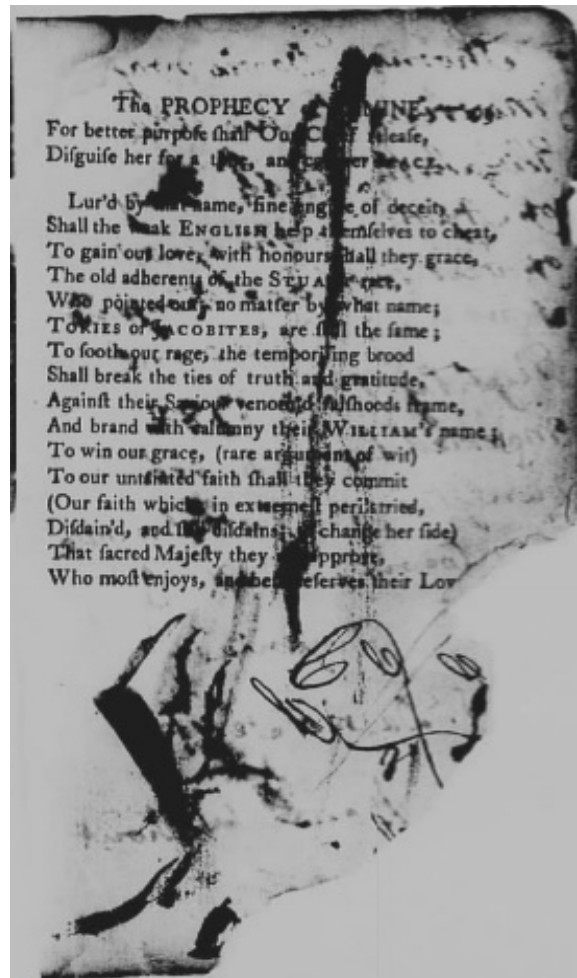 The PROPHECY of FAMINE
For better purpose shall Our Chief release,
Disguise her for a time, and call her PEACE.
Lur'd by that name, fine engine of deceit,
Shall the weak ENGLISH help themselves to cheat,
To gain our love, with honours shall they grace,
The old adherents of the STUART race,
Who pointed out, no matter by what name,
TORIES or JACOBITES, are still the same;
To sooth our rage, the temporising brood
Shall break the ties of truth and gratitude,
Against their Saviour venom'd falshoods frame,
And brand with calumny their WILLIAM's name;
To win our grace, (rare argument of wit)
To our untainted faith shall they commit
(Our faith which, in extremest perils tried,
Disdain'd, and still disdains, to change her side)
That sacred Majesty they all approve,
Who most enjoys, and best deserves their Lov